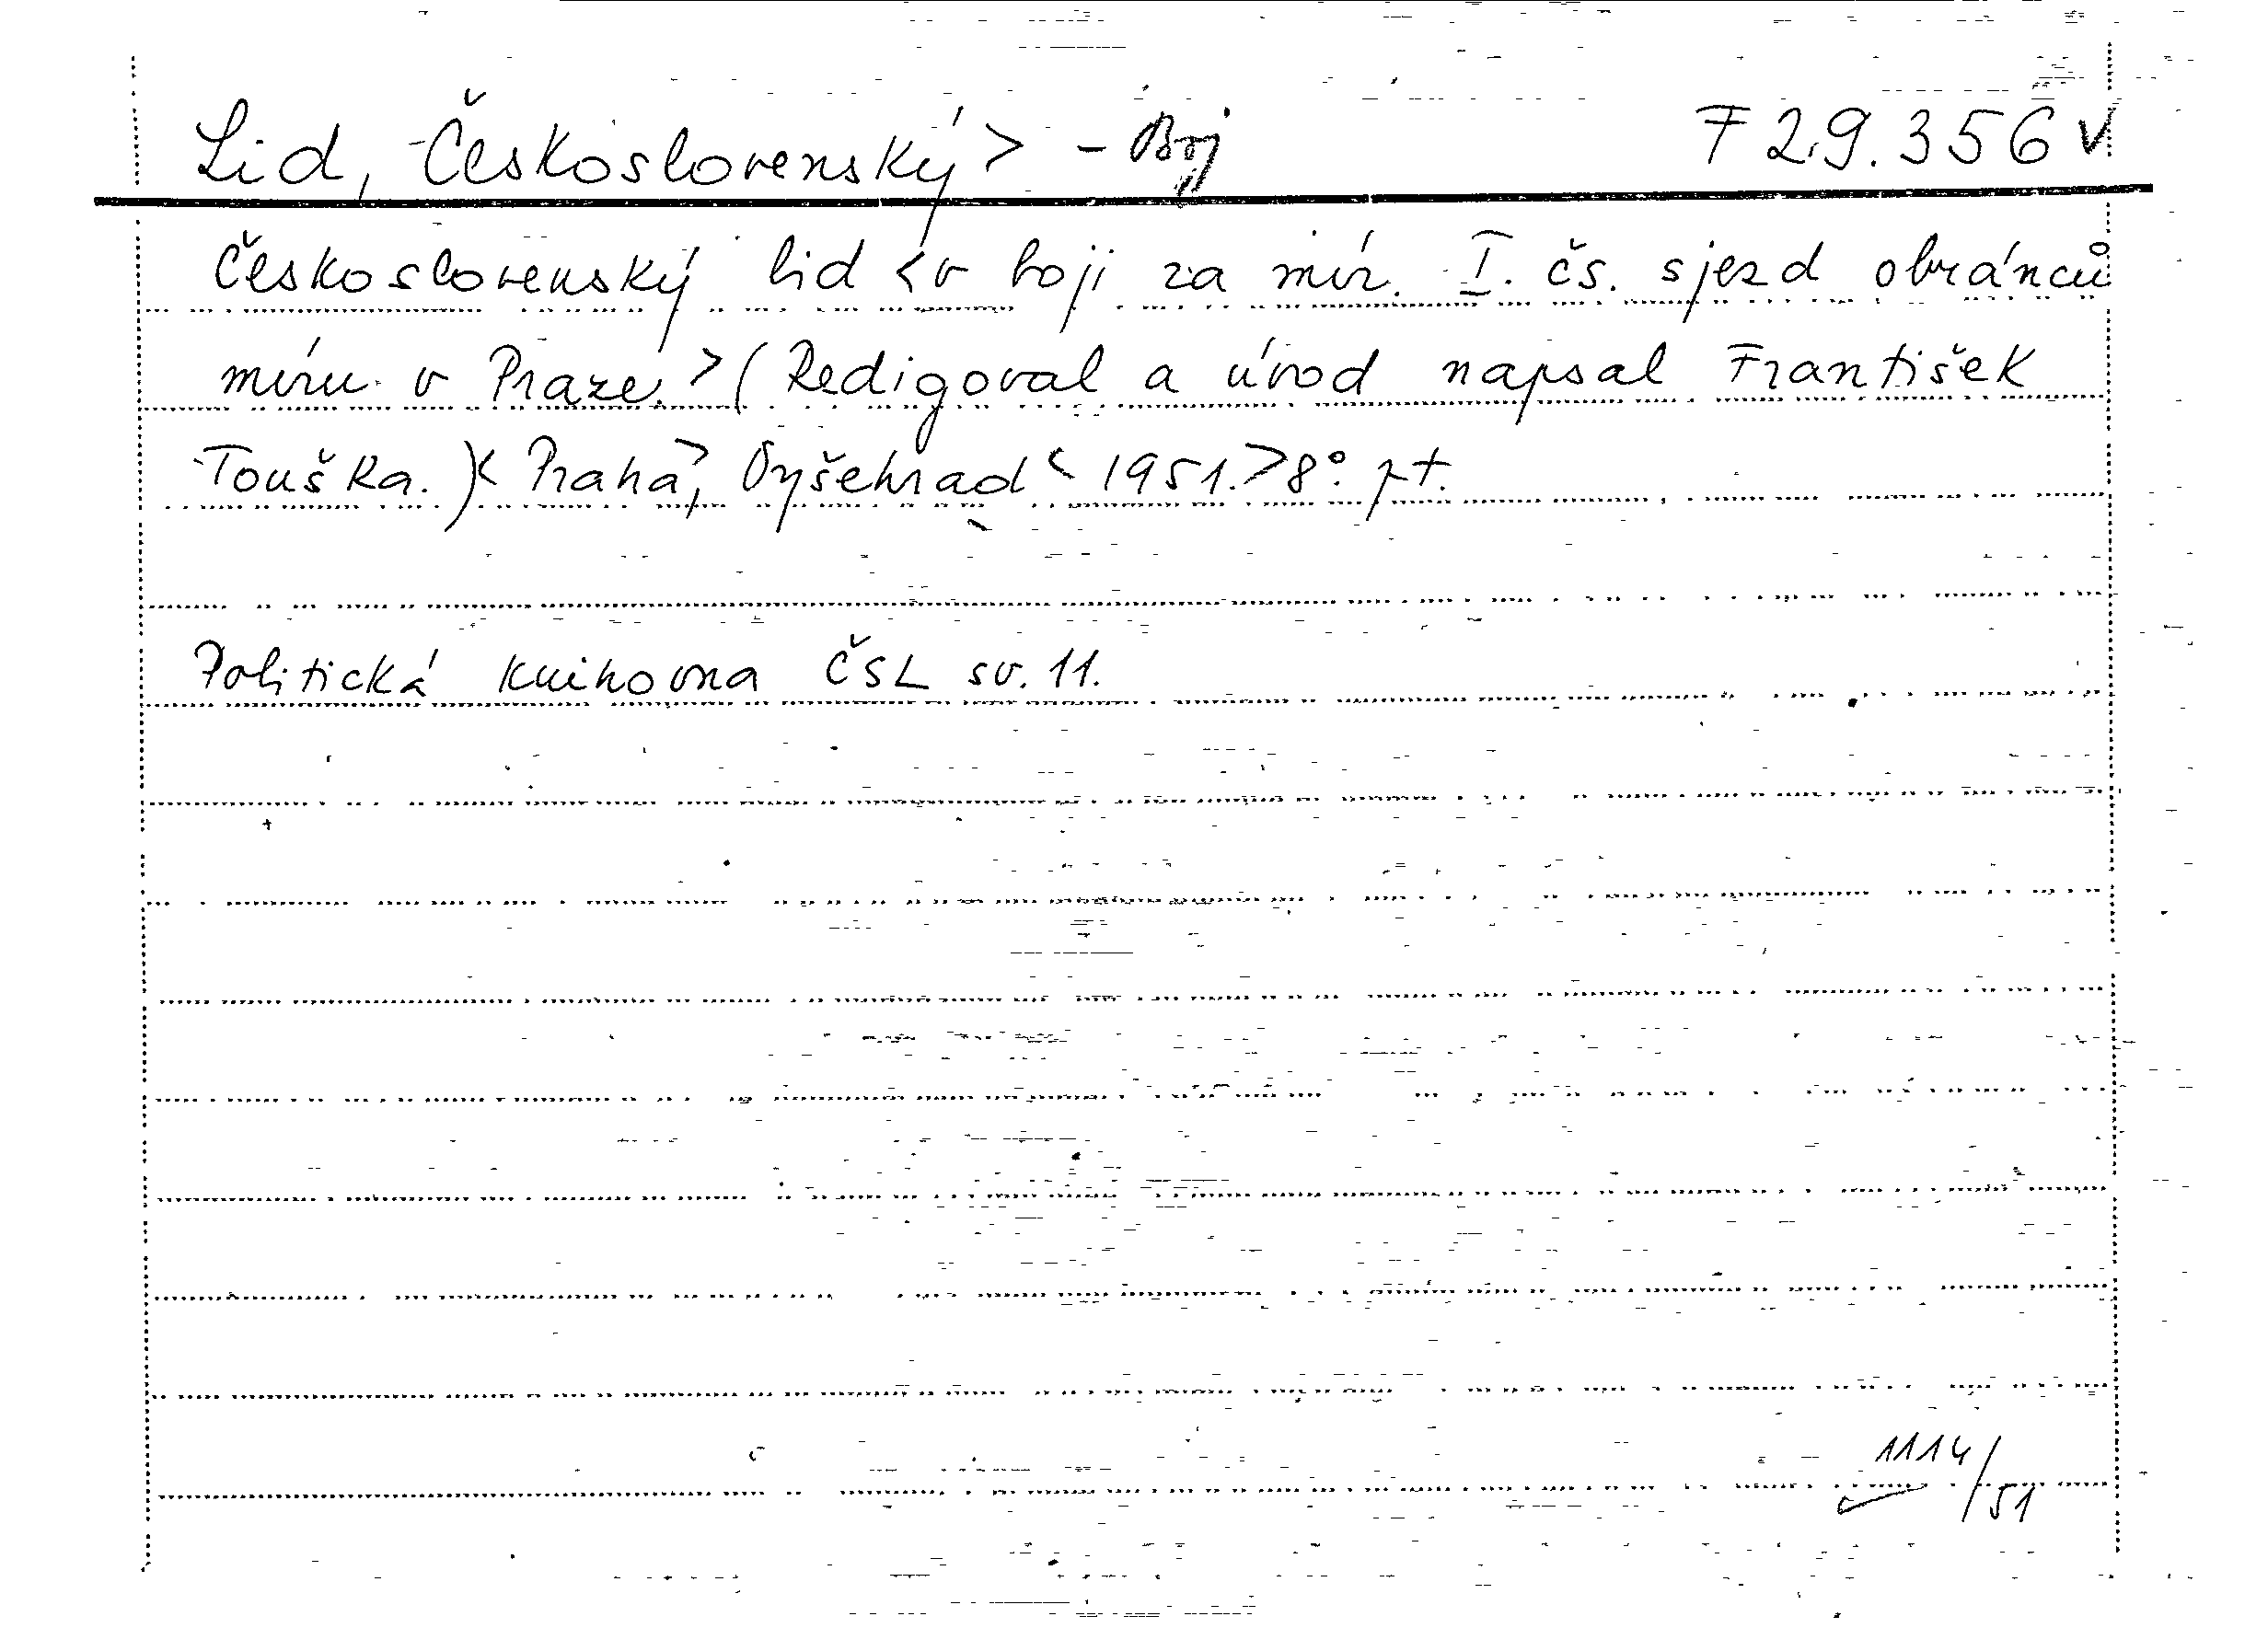 Lid, Československý> - Boj F 29.356 v
Československý lid <v boji za mír. I. čs. sjezd obránců
míru v Praze.> (Redigoval a úvod napsal František
Touška.)< Praha>, Vyšehrad < 1951.> 8°.
Politická knihovna ČSL sv. 11.
1114/51